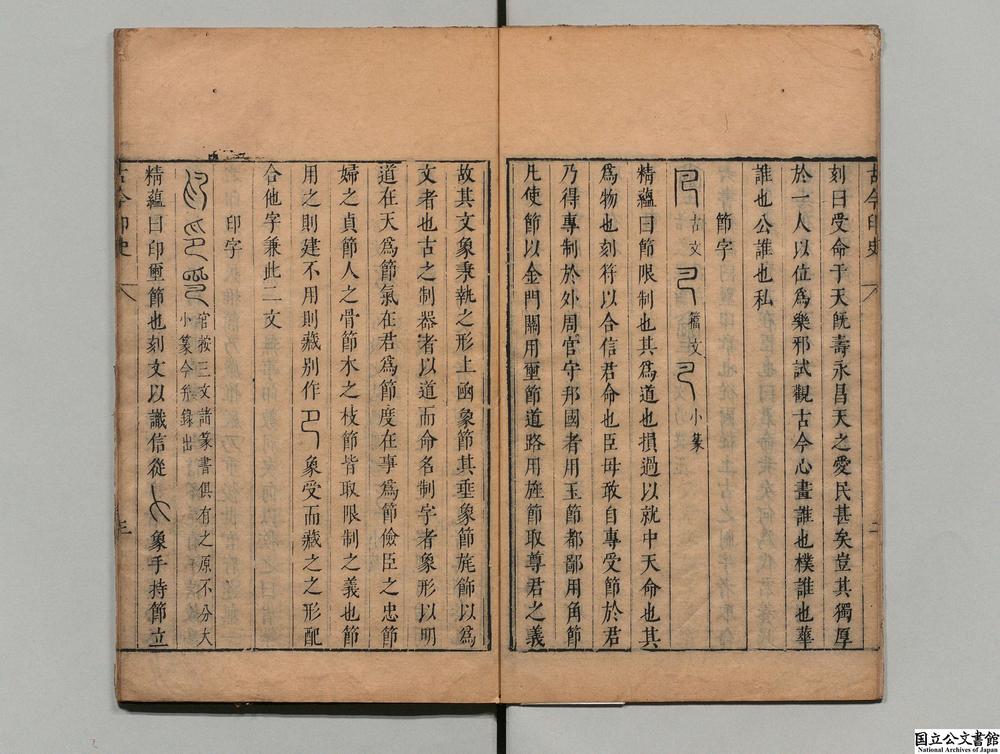 古今印史
二
刻曰受命于天旣壽永昌天之愛民甚矣豈其獨厚
於一人以位爲樂邪試觀古今心畫誰也樸誰也華
誰也公誰也私
節字
古文
籀文
小篆
精蘊曰節限制也其爲道也損過以就中天命也其
爲物也刻符以合信君命也臣毋敢自專受節於君
乃得專制於外周官守邦國者用玉節都鄙用角節
凡使節以金門關用璽節道路用旌節取尊君之義
故其文象秉執之形上𠧟象節其垂象節旄飾以爲
文者也古之制器者以道而命名制字者象形以明
道在天爲節氣在君爲節度在事爲節儉臣之忠節
婦之貞節人之骨節木之枝節皆取限制之義也節
用之則建不用則藏別作㔾象受而藏之之形配
合他字兼此二文
印字
官按三文諸篆書俱有之原不分大
小篆今並錄出
精蘊曰印璽節也刻文以識信從 象手持節立
古今印史
三
国立公文書館
National Archives of Japan